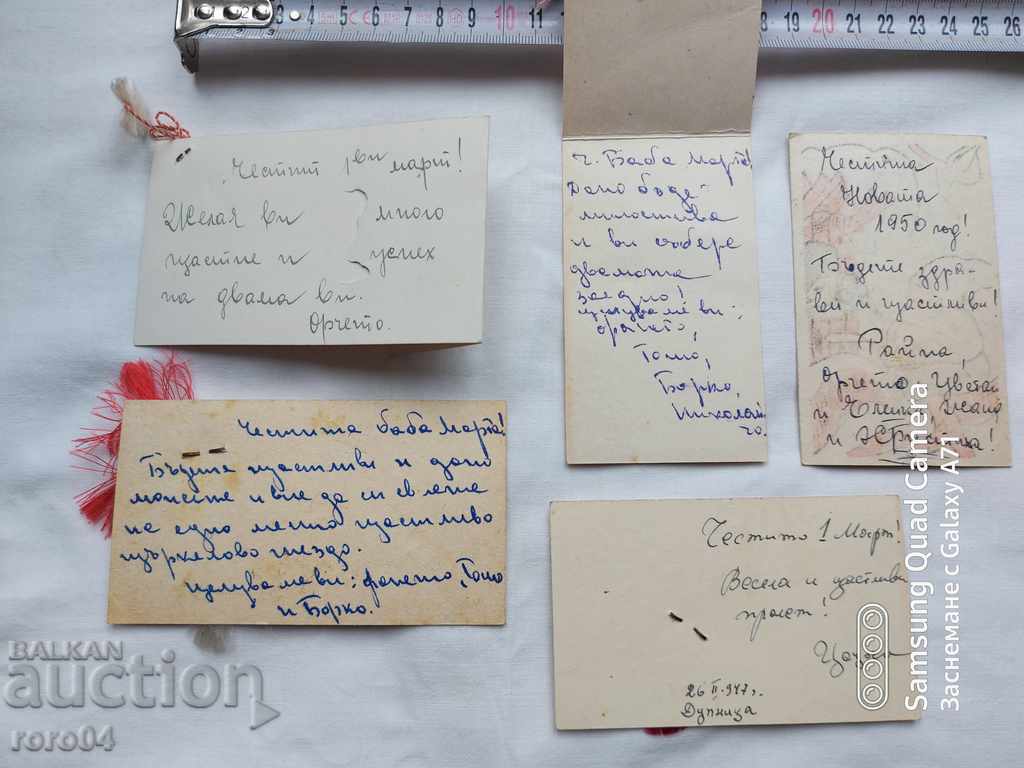 2 3 4 5 6 7 8 9 10 11
CE
18 19 20 21 22 23 24 25 26
Честит 1ви март!
Желая ви много
щастие и успех
на двама ви.
Орчето.
Ч. Баба Марта!
Дано бъде
милостива
и ви събере
двамата
заедно!
Целуваме ви:
Орчето,
Гошо,
Борко,
Николай
Честита
Новата
1950 год!
Бъдете здра-
ви и щастливи!
Райна,
Орчето, Цветан
и
и
Честита баба Марта!
Бъдете щастливи и дано
можете и вие да си свиете
на едно место щастливо
щъркелово гнездо.
Целуваме ви: Орчето, Гошо
и Борко.
Честито 1 Март!
Весела и щастлива
пролет!
26 II. 947 г.
Дупница
BALKAN
auction
roro04
Samsung Quad Camera
Заснемане с Galaxy A71